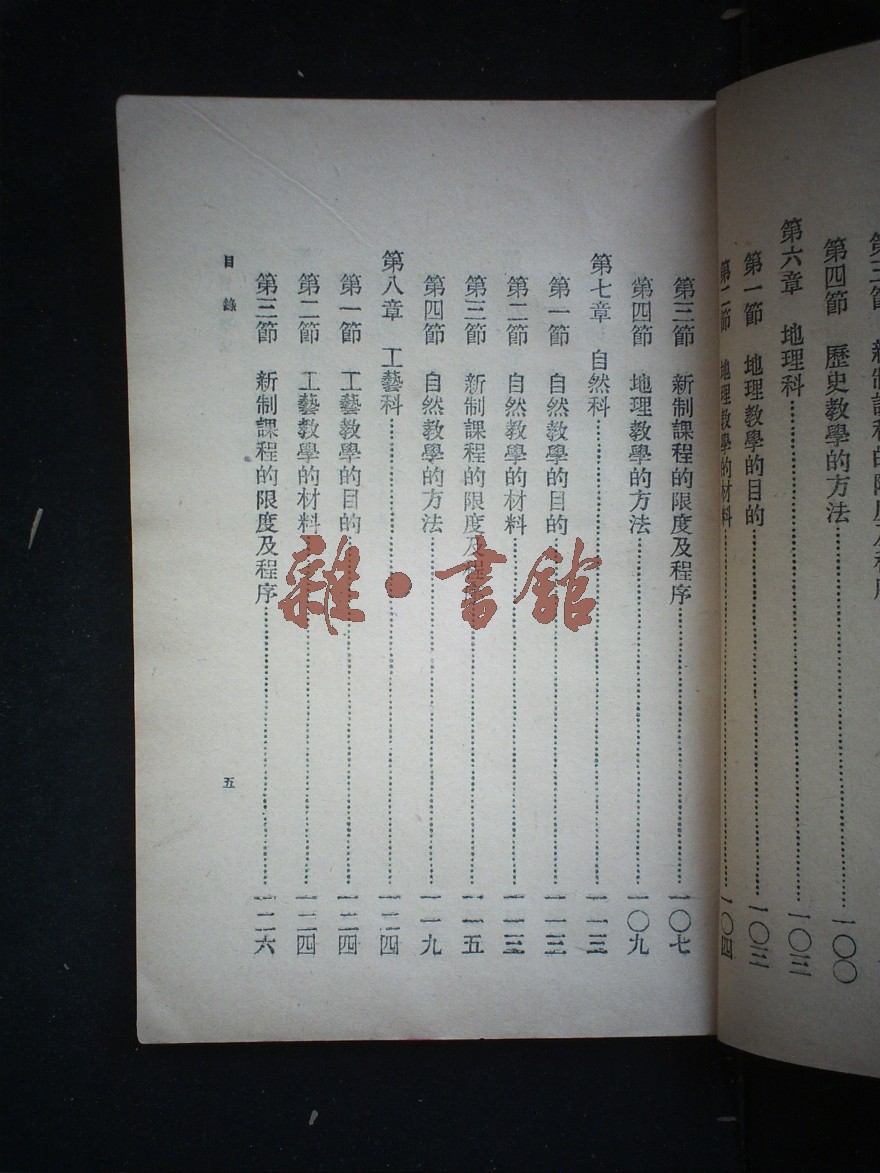 第三節 新制課程的限度及程序
第四節 歷史教學的方法……一〇〇
第六章 地理科……一〇三
第一節 地理教學的目的……一〇三
第二節 地理教學的材料……一〇四
第三節 新制課程的限度及程序……一〇七
第四節 地理教學的方法……一〇九
第七章 自然科……一一三
第一節 自然教學的目的……一一三
第二節 自然教學的材料……一一三
第三節 新制課程的限度及程序……一一五
第四節 自然教學的方法……一一九
第八章 工藝科……一二四
第一節 工藝教學的目的……一二四
第二節 工藝教學的材料……一二四
第三節 新制課程的限度及程序……一二六
目錄 五
雜·書館